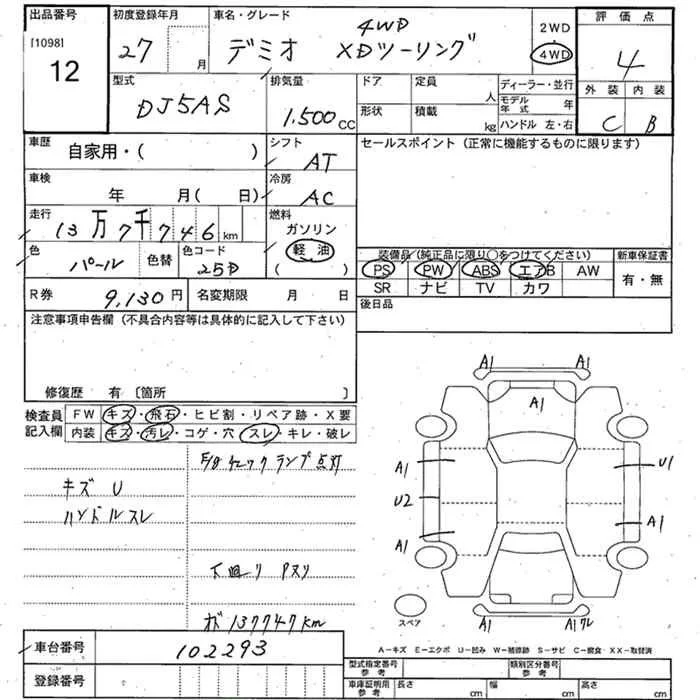 出品番号 初度登録年月 車名・グレード 4WD 2WD 評価点
[1098] 12 27 月 デミオ XDツーリング 4WD 4
型式 排気量 ドア 定員 人 ディーラー・並行 外装 内装
DJ5AS 1.500cc 形状 積載 kg モデル年式 年 ハンドル 左・右 C B
車歴 自家用・( ) シフト AT セールスポイント(正常に機能するものに限ります)
車検 年 月( 日) 冷房 AC
走行 13万7千746km 燃料 ガソリン 軽油
色 パール 色替 色コード 25D
装備品(純正品に限り○をつけてください) 新車保証書
PS PW ABS エアB AW 有・無
SR ナビ TV カワ
R券 9,130円 名変期限 月 日 後日品
注意事項申告欄(不具合内容等は具体的に記入して下さい)
修復歴 有〔箇所 〕
検査員 FW キズ・飛石・ヒビ割・リペア跡・X要
記入欄 内装 キズ・汚レ・コゲ・穴・スレ・キレ・破レ
チェックランプ点灯
キズ U
ハンドルスレ
下廻り Pヌリ
137747km
A1 A1
A1
A1 U1
U2
A1 A1
スペア A1 A1
A-キズ E-エクボ U-凹み W-補修跡 S-サビ C-腐食 XX-取替済
車台番号 102293
登録番号
型式指定番号 参考 類別区分番号 参考
車庫証明用 参考 長さ cm 幅 cm 高さ cm